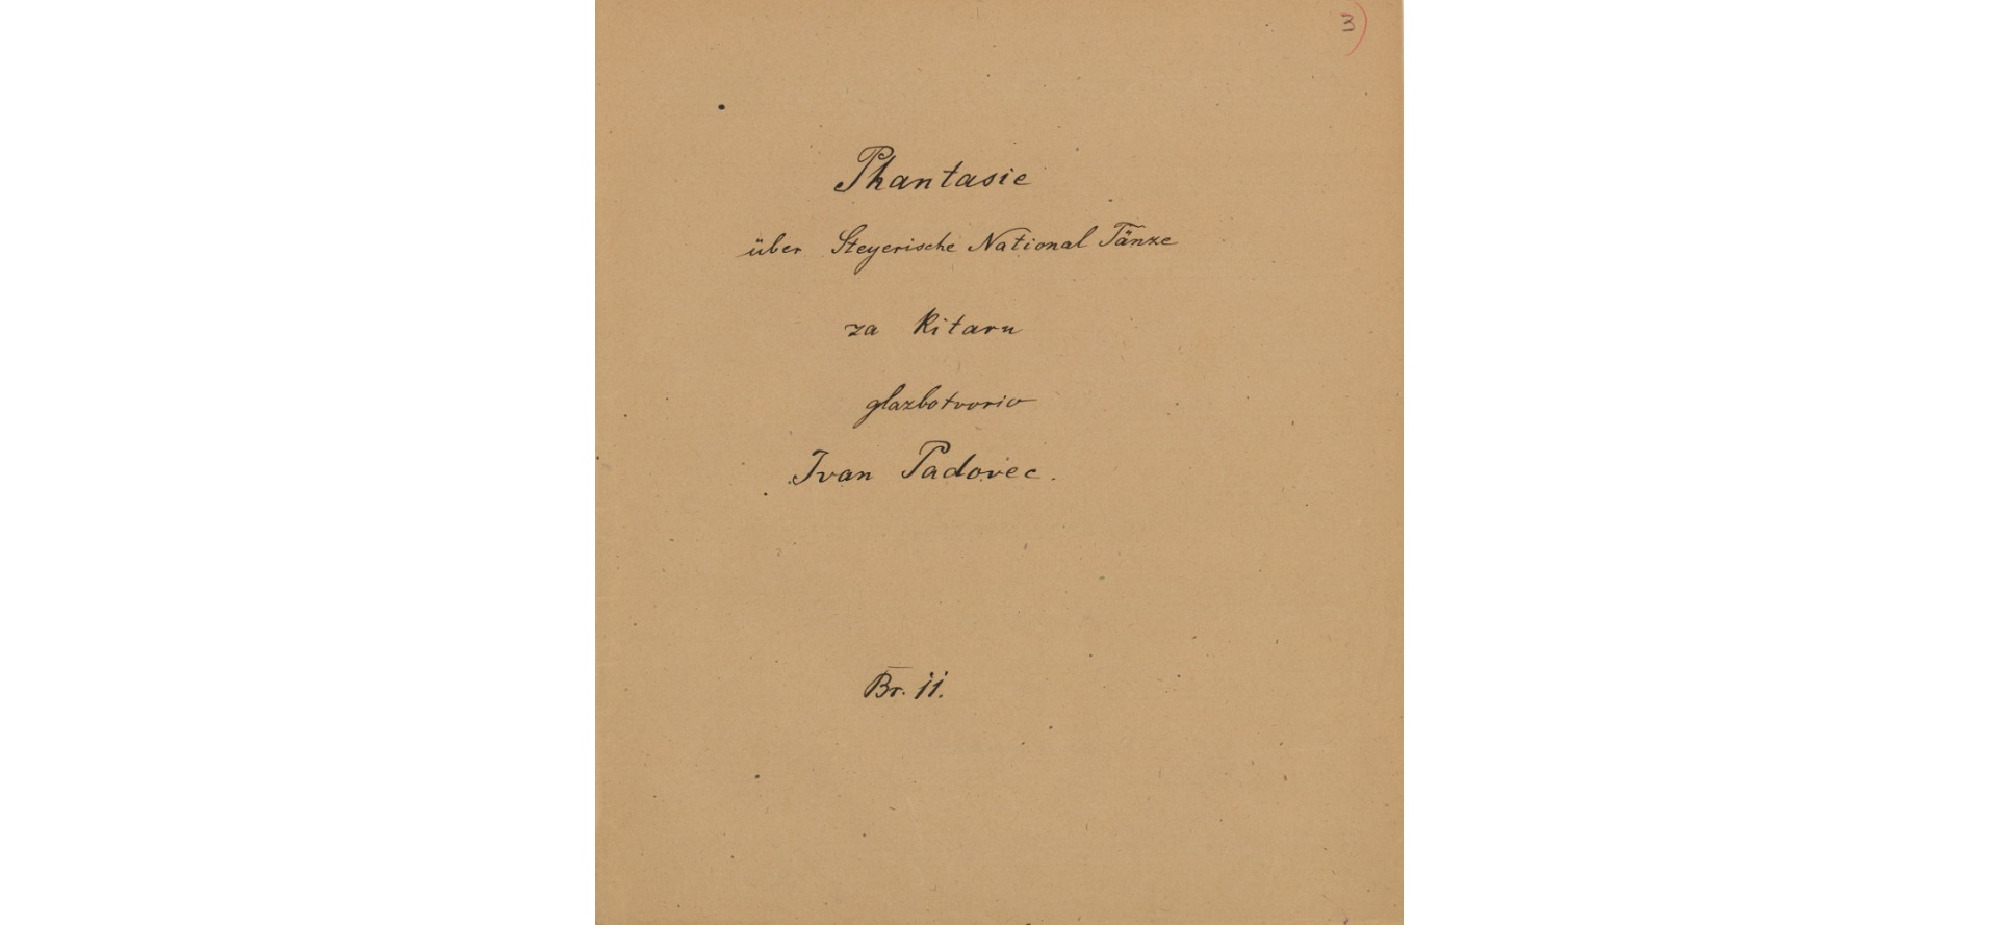 3)
Phantasie
über Steyerische National Tänze
za Kitaru
glazbotvorio
Ivan Padovec.
Br. 11.